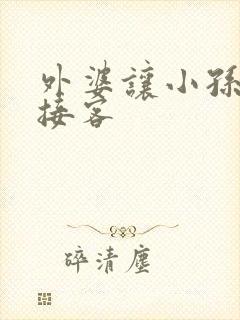 外婆讓小孫
接客
碎清塵